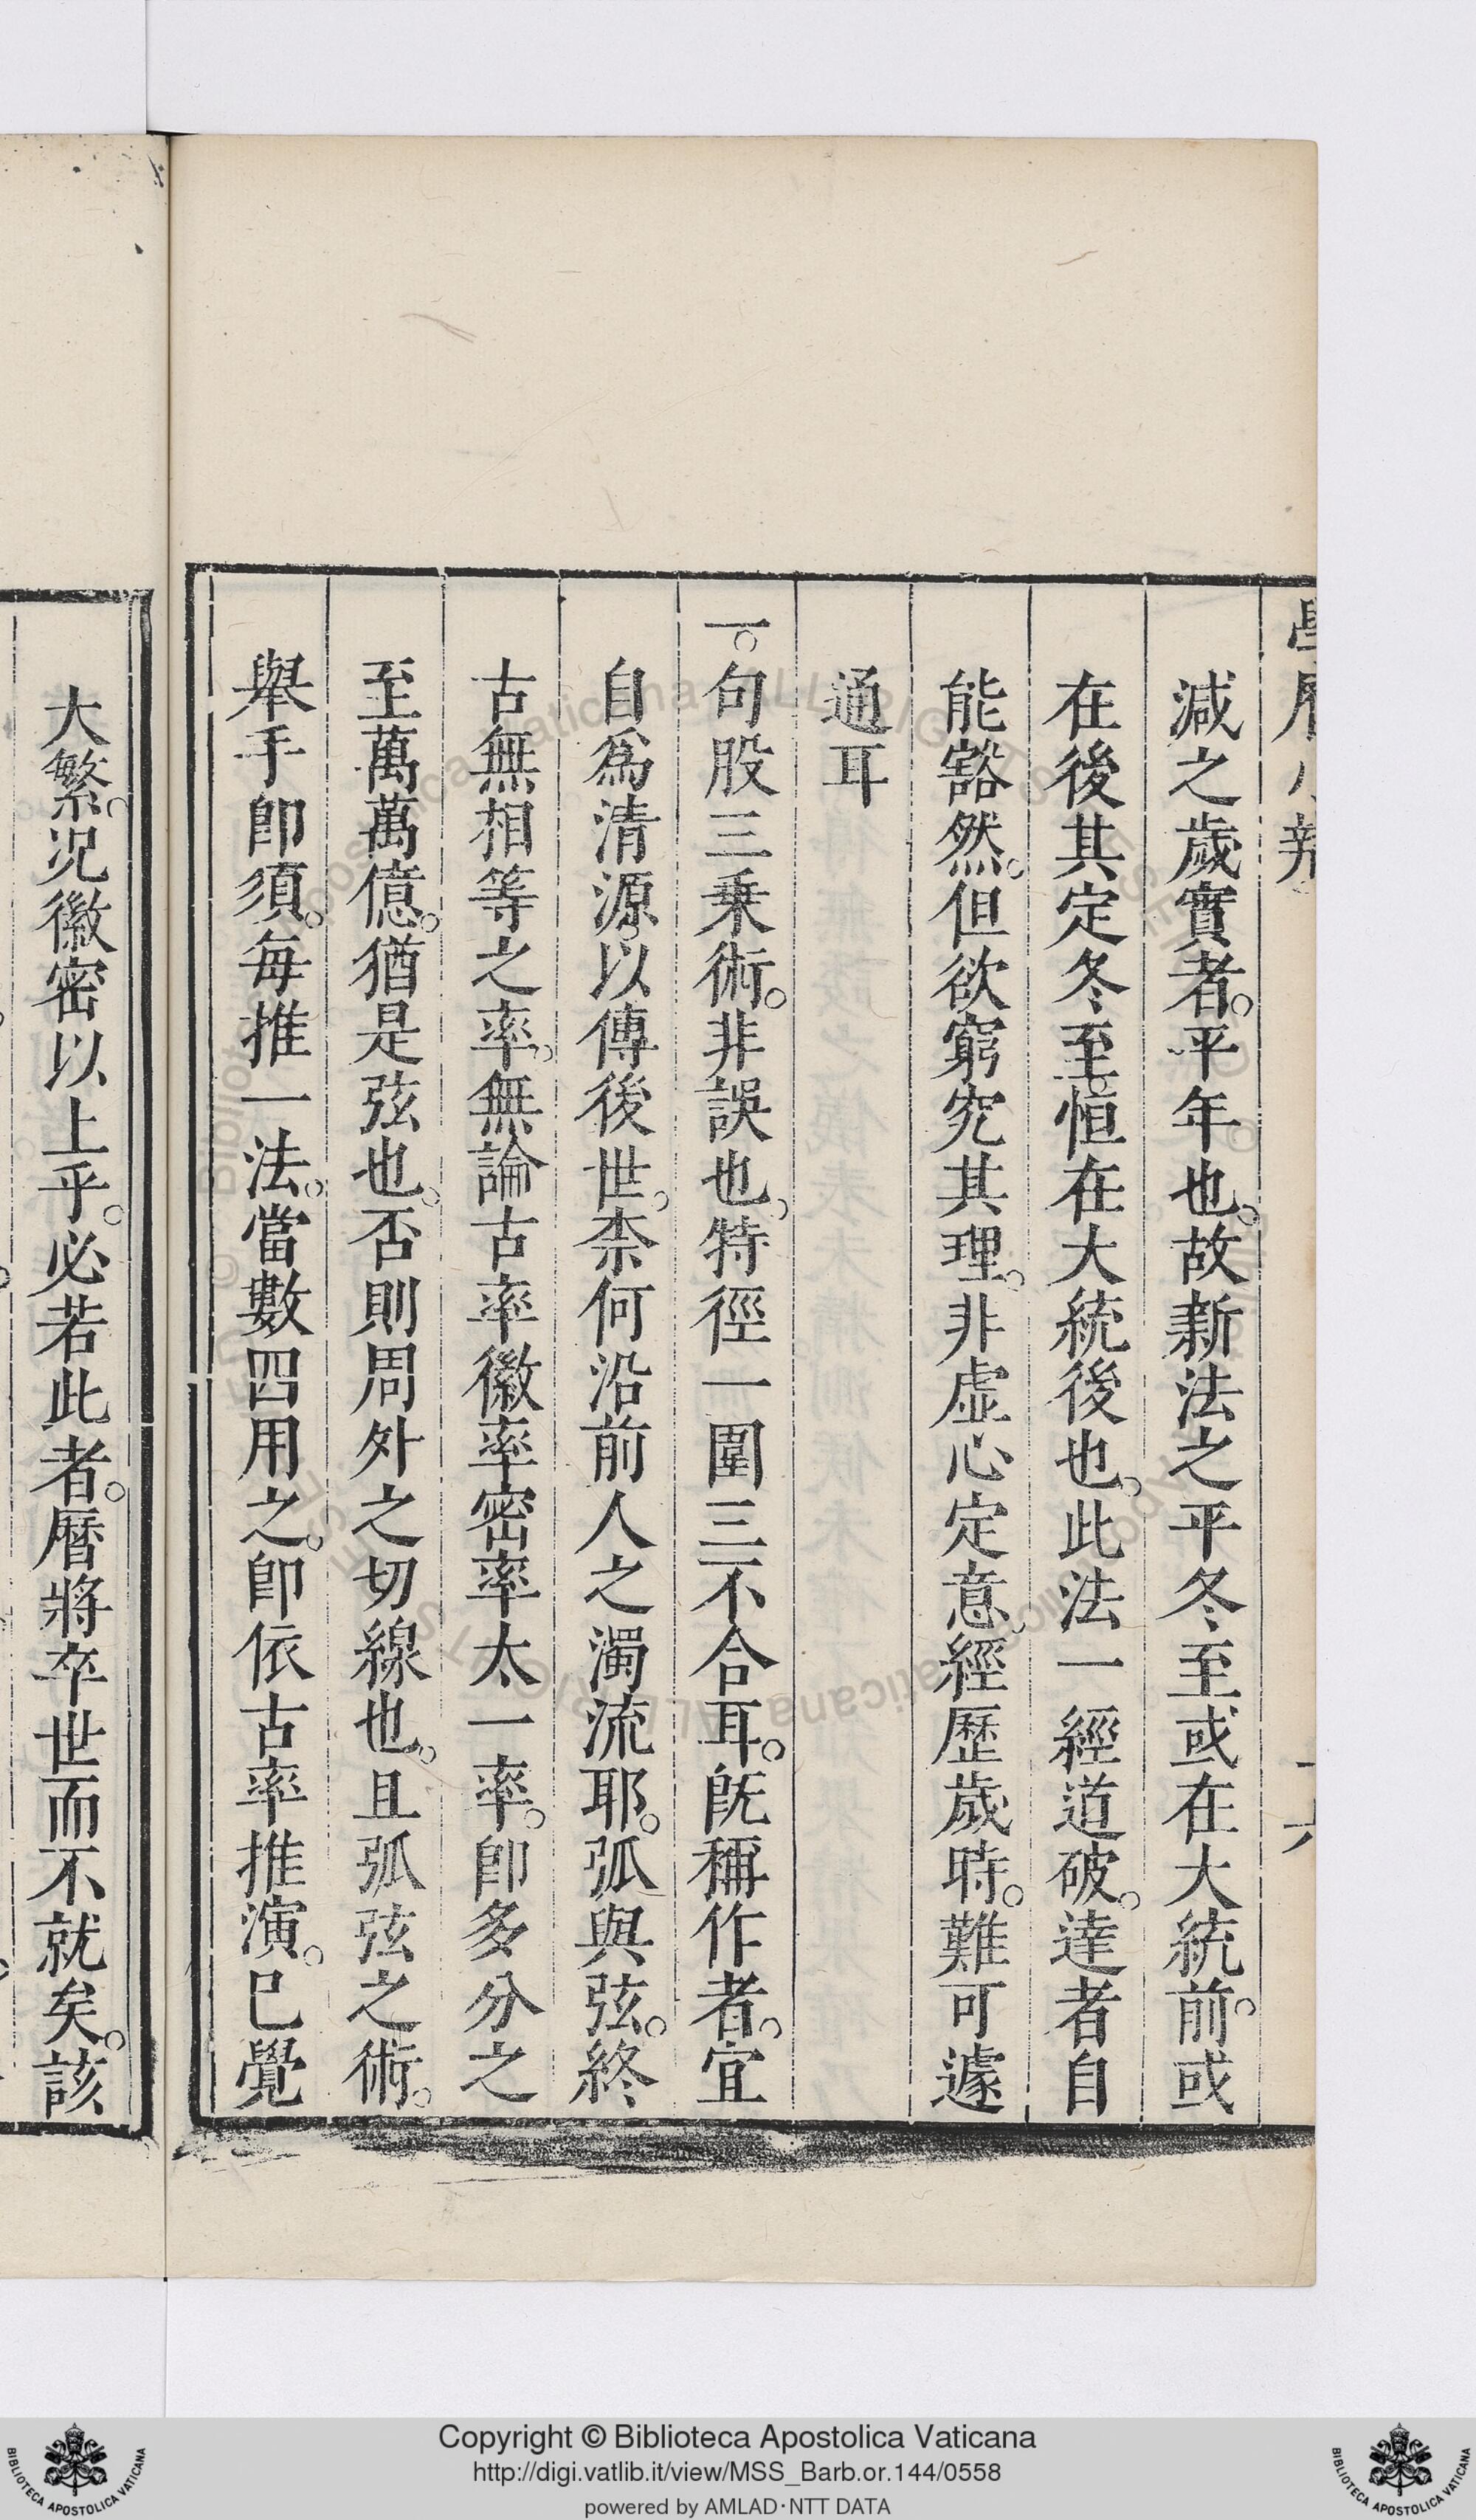 減之歲實者。平年也。故新法之平冬至或在大統前。或
在後其定冬至。恒在大統後也。此法一經道破。達者自
能豁然。但欲窮究其理。非虛心定意。經歷歲時。難可遽
通耳
一。句股三乗術。非誤也。特徑一圍三不合耳。旣稱作者。宜
自為清源。以傳後世。柰何沿前人之濁流耶。弧與弦。終
古無相等之率。無論古率徽率密率太一率。卽多分之
至萬萬億。猶是弦也。否則周外之切線也。且弧弦之術。
舉手卽須。每推一法。當數四用之。卽依古率推演。已覺
大繁。況徽密以上乎。必若此者。曆將卒世而不就矣。該
Copyright © Biblioteca Apostolica Vaticana
http://digi.vatlib.it/view/MSS_Barb.or.144/0558
powered by AMLAD·NTT DATA
BIBLIOTECA APOSTOLICA VATICANA
BIBLIOTECA APOSTOLICA VATICANA